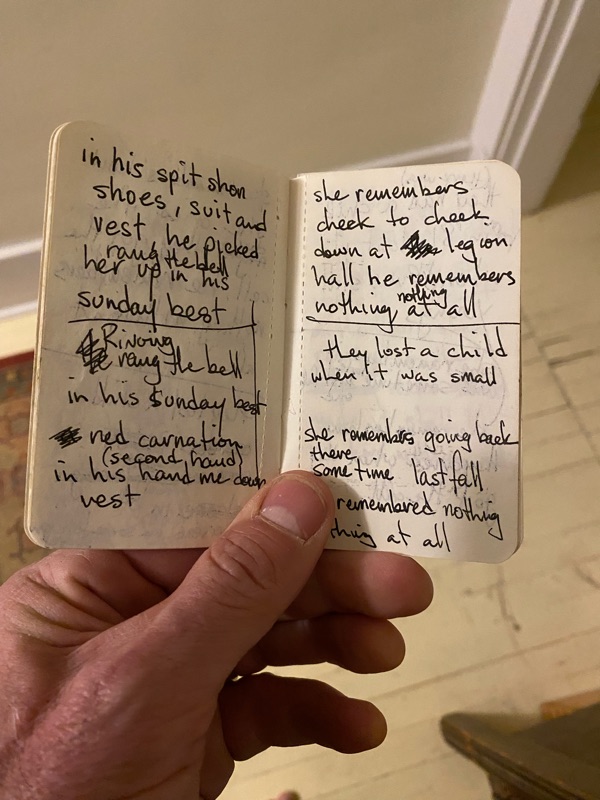 in his spit shon
shoes, suit and
vest he picked
rang the bell
her up in his
sunday best
Ringing
rang the bell
in his Sunday best
red carnation
(second hand)
in his hand me down
vest
she remembers
cheek to cheek
down at legion
hall he remembers
nothing
nothing at all
they lost a child
when it was small
she remembers going back
there
sometime last fall
remembered nothing
thing at all